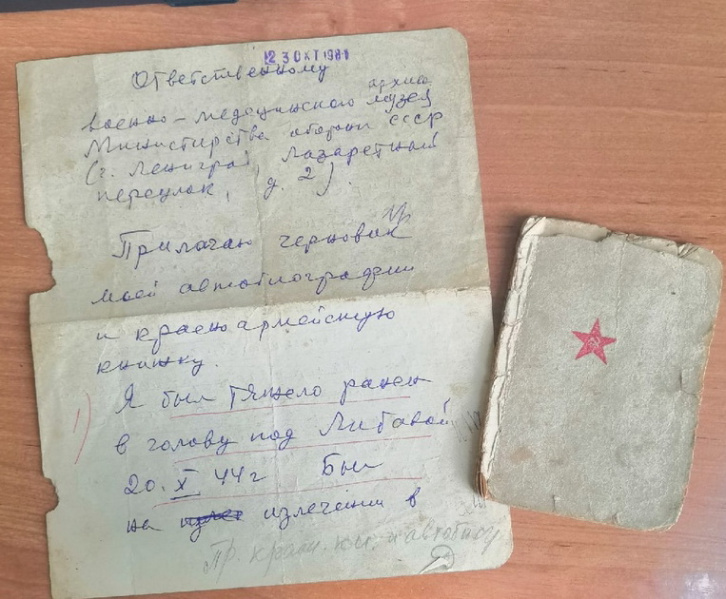 23 ОКТ 1981
Ответственному
архива
военно-медицинского музея
Министирства обороны СССР
(г. Ленинград, Лазаретный
переулок, д. 2).
Прилагаю черновик
моей автобиографии
и красноармейскую
книжку.
1) Я был тяжело ранен
в голову под Либавой
20.X 44 г Был
на излечении в
Пр. красн. кн. и автобиогр